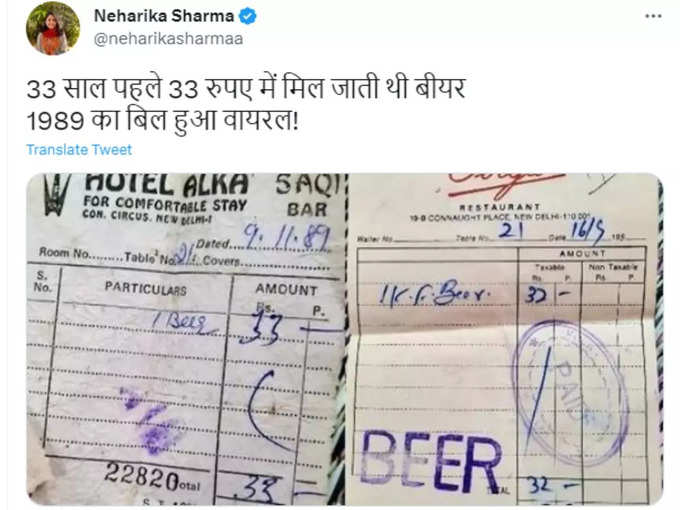 Neharika Sharma
@neharikasharmaa
33 साल पहले 33 रुपए में मिल जाती थी बीयर
1989 का बिल हुआ वायरल!
Translate Tweet
HOTEL ALKA
SAQI
BAR
FOR COMFORTABLE STAY
CON. CIRCUS, NEW DELHI-1
Dated....9.11.89
Room No........Table No.21. Covers...........
S. No.
PARTICULARS
AMOUNT
Rs. P.
1 Beer 33 -
22820
otal 33 -
RESTAURANT
19-B CONNAUGHT PLACE, NEW DELHI-110 001
Waiter No. Table No. 21 Date 16/5 195
AMOUNT
Taxable Non Taxable
Rs. P. Rs. P.
1 K.F. Beer. 32 -
PAID
BEER
TOTAL 32 -